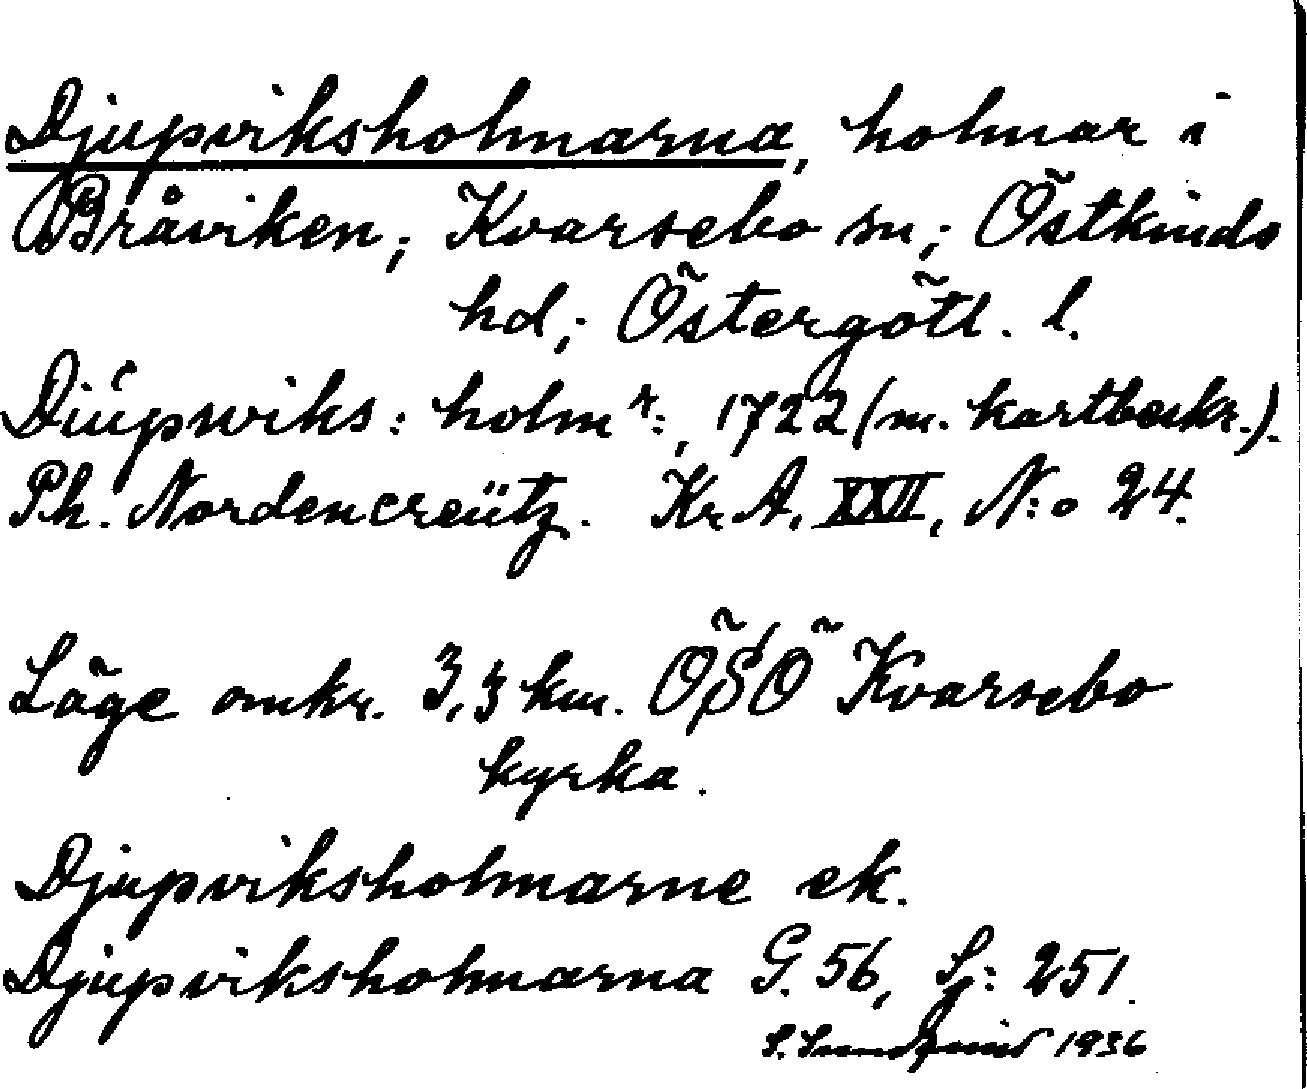 Djupviksholmarna, holmar i
Bråviken; Kvarsebo sn; Östkinds
hd; Östergötl. l.
Diúpwiks: holmr:, 1722 (m. kartbeskr.).
Ph. Nordencreütz. Kr. A. XXII, N:o 24.
Läge omkr. 3,3 km. ÖSÖ Kvarsebo
kyrka.
Djupviksholmarne ek.
Djupviksholmarna G. 56, Sj: 251.
S. Sundqvist 1936